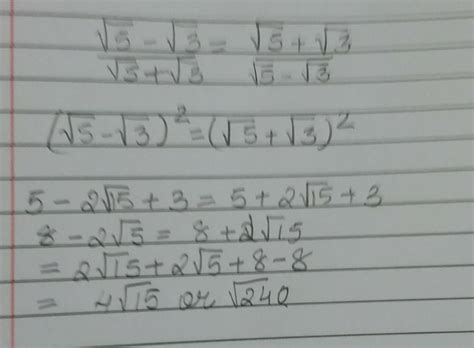 √5 - √3 = √5 + √3
√5 + √3   √5 - √3
(√5 - √3)² = (√5 + √3)²
5 - 2√15 + 3 = 5 + 2√15 + 3
8 - 2√5 = 8 + 2√15
= 2√15 + 2√5 + 8 - 8
= 4√15 or √240